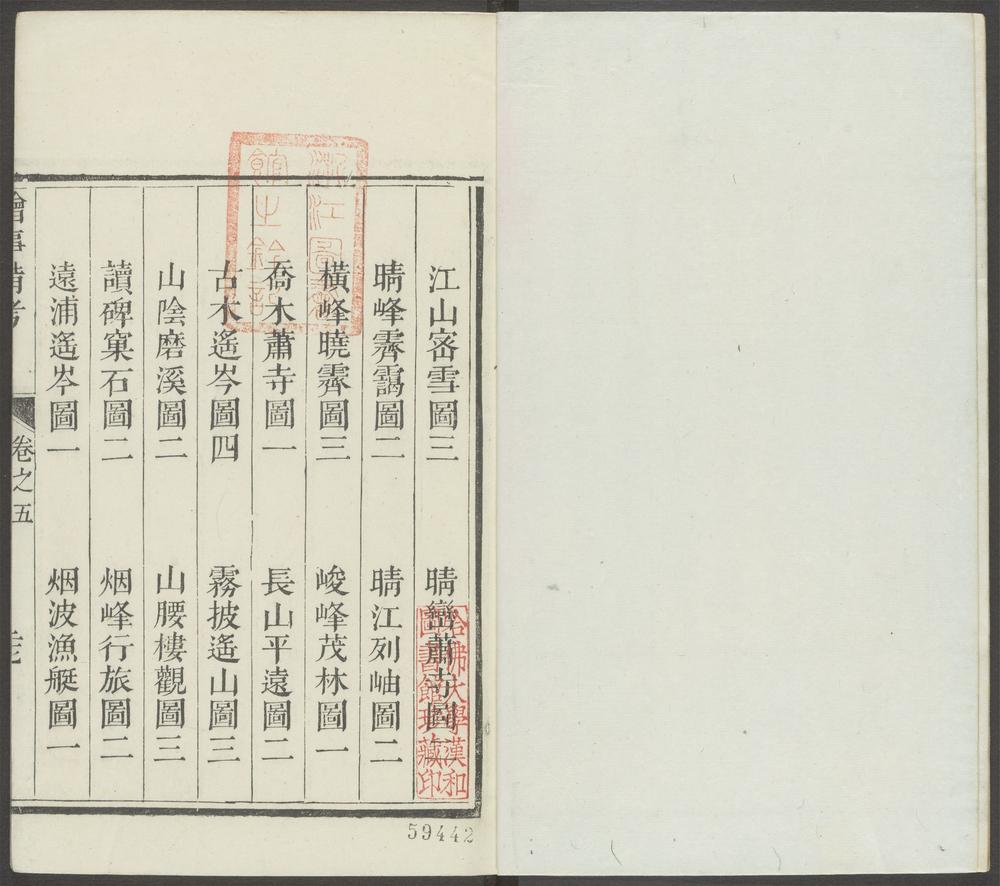 江山密雪圖三
晴巒蕭寺圖
晴峰霽靄圖二
晴江列岫圖二
橫峰曉霽圖三
峻峰茂林圖一
喬木蕭寺圖一
長山平遠圖二
古木遙岑圖四
霧披遙山圖三
山陰磨溪圖二
山腰樓觀圖三
讀碑窠石圖二
烟峰行旅圖二
遠浦遙岑圖一
烟波漁艇圖一
繪事備考
卷之五
浙江圖書
館之鈐記
哈佛大學漢和
圖書館珍藏印
59442